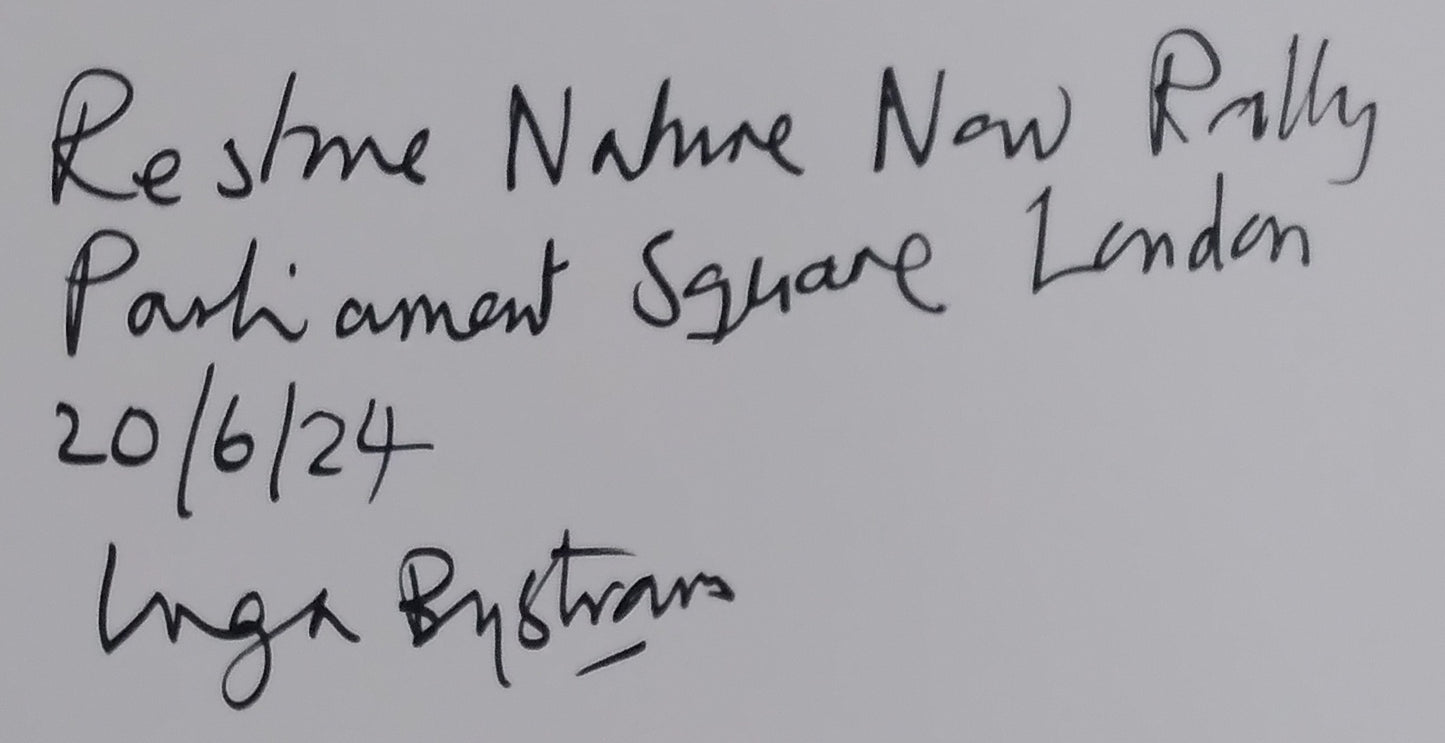 Restore Nature Now Rally
Parliament Square London
20/6/24
Inga Bystram